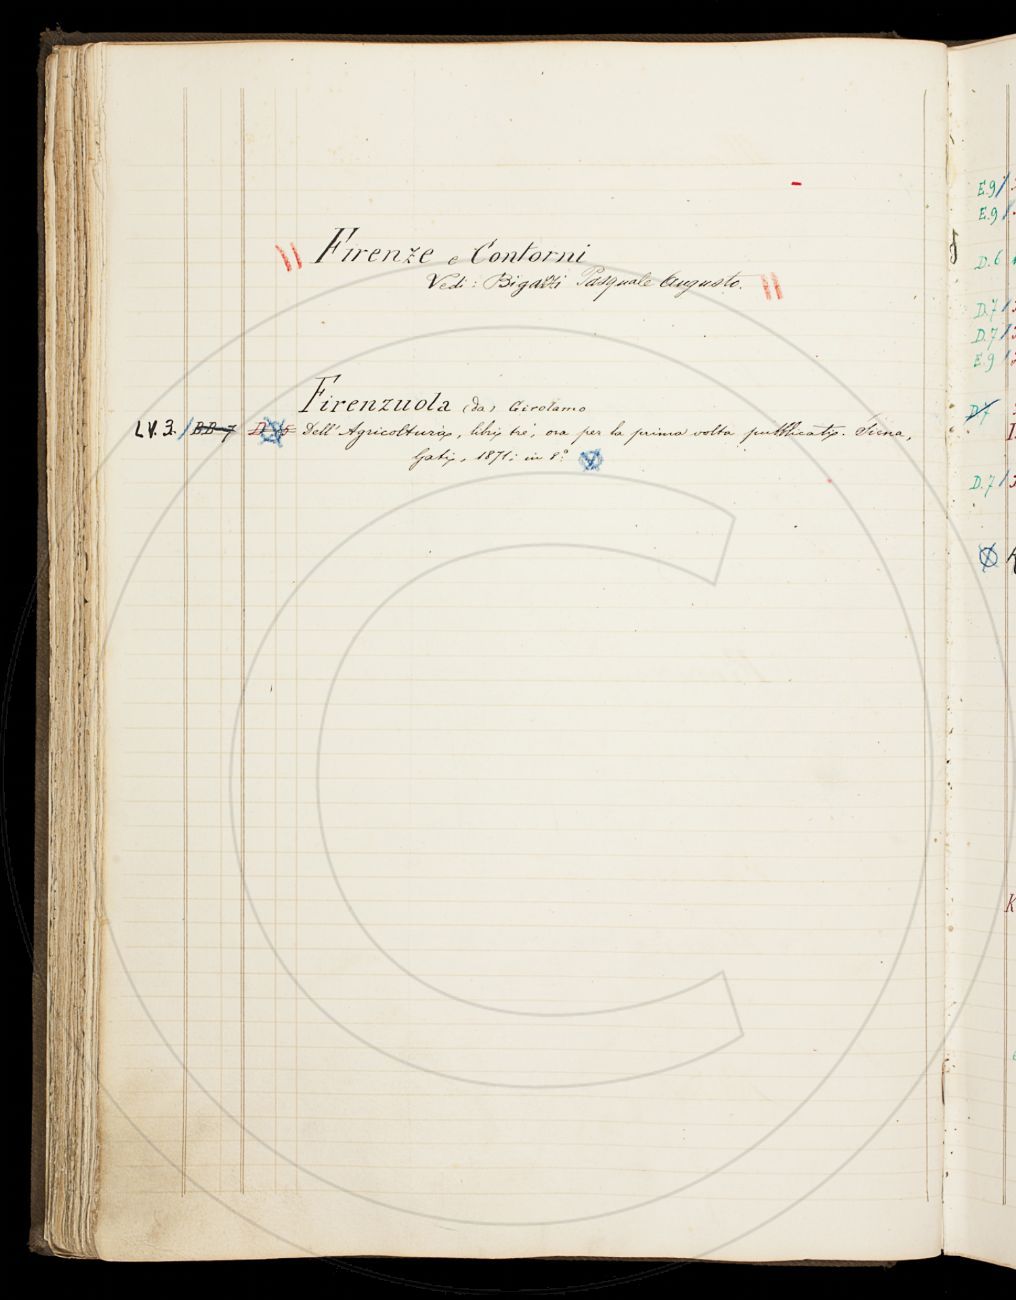 Firenze e Contorni
Vedi: Bigazzi Pasquale Augusto.
Firenzuola (da) Girolamo
LV. 3. / BB-7 Dell'Agricoltura, libri tré, ora per la prima volta pubblicati. Siena,
Gati, 1871; in 8º
E.9/
E.9/
D.6
D.7/
D.7/
E.9/
D.7
D.7/
K